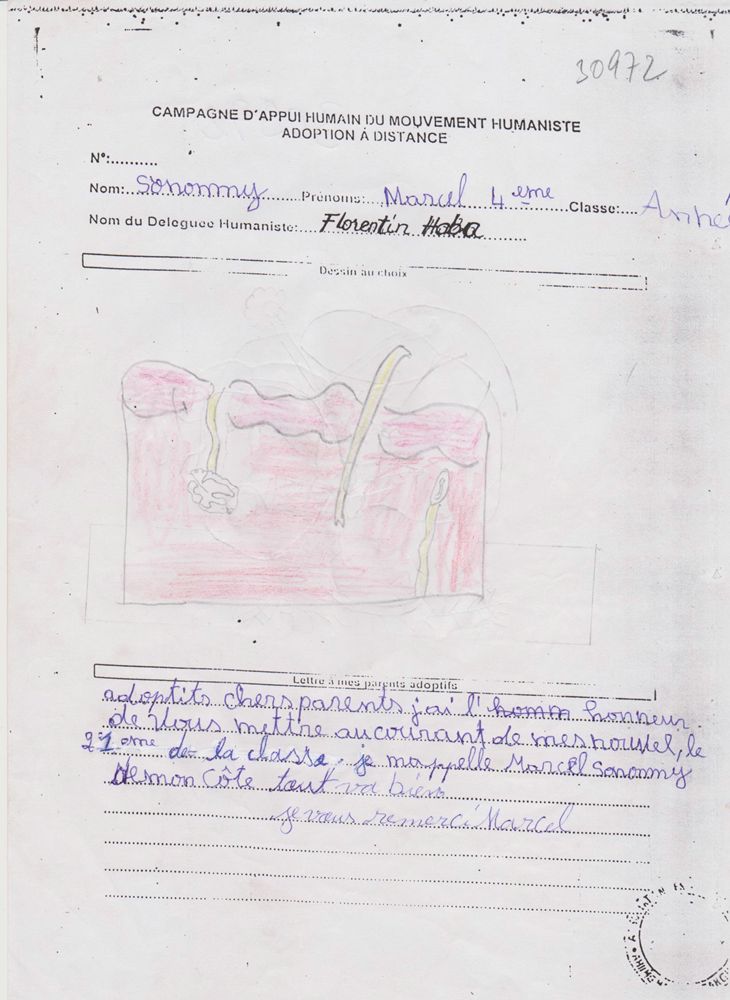 30972
CAMPAGNE D'APPUI HUMAIN DU MOUVEMENT HUMANISTE
ADOPTION À DISTANCE
N°:..........
Nom: Sonommy Prénoms: Marcel 4 eme Classe: Anné
Nom du Deleguee Humaniste: Florentin Haba
Dessin au choix
Lettre à mes parents adoptifs
adoptits chers parents j'ai l' homm honneur
de vous mettre au courant de mes nouvel, le
21 eme de la classe. je m'appelle Marcel Sonommy
De mon Côte tout va bien
je vous remerci Marcel